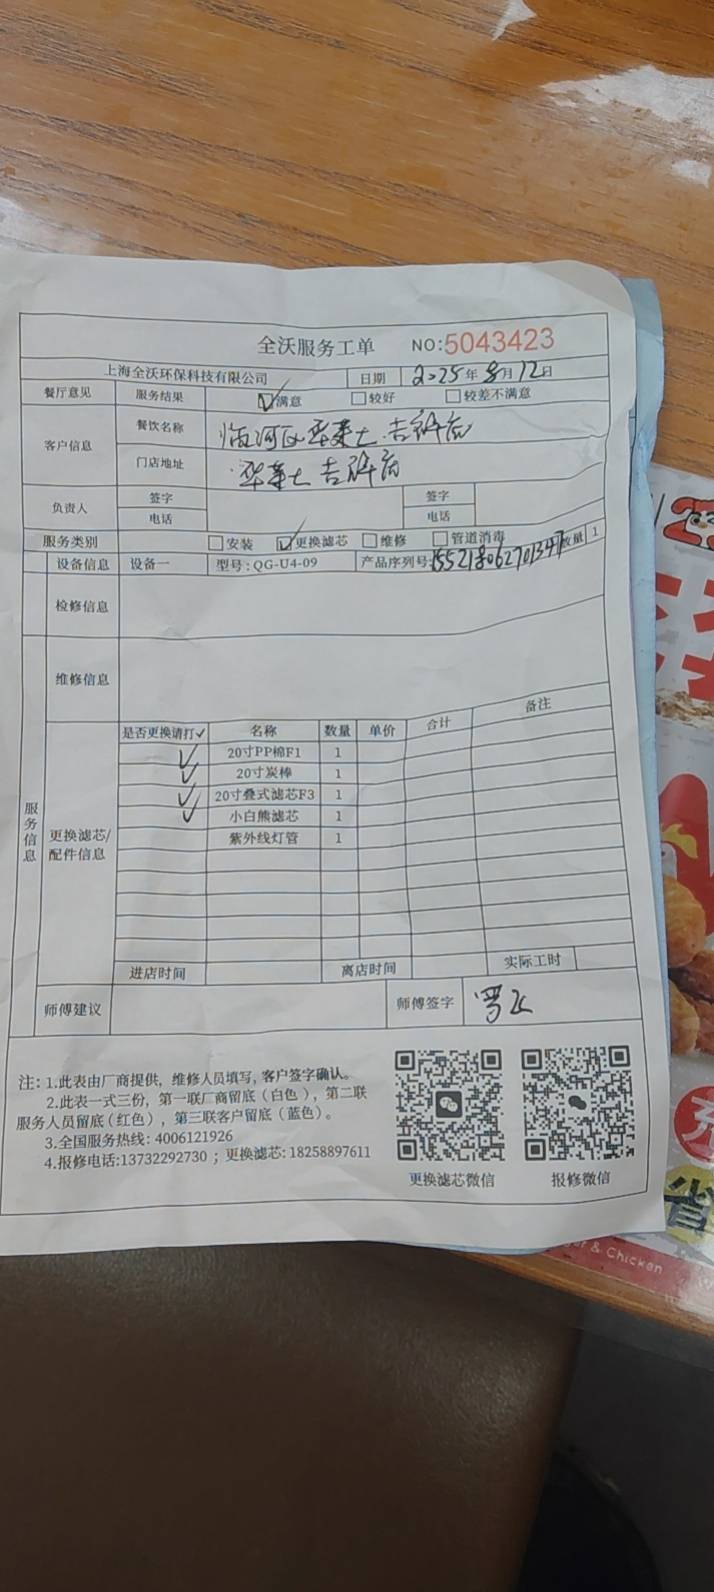 全沃服务工单 NO:5043423
上海全沃环保科技有限公司 日期 2025年8月12日
餐厅意见 服务结果 ☑满意 □较好 □较差不满意
客户信息 餐饮名称 临河区华莱士
门店地址 华莱士
负责人 签字 签字
电话 电话
服务类别 □安装 ☑更换滤芯 □维修 □管道消毒
设备信息 设备一 型号:QG-U4-09 产品序列号: 数量 1
检修信息
维修信息
服务信息
更换滤芯/配件信息
是否更换请打✓ 名称 数量 单价 合计 备注
✓ 20寸PP棉F1 1
✓ 20寸炭棒 1
✓ 20寸叠式滤芯F3 1
✓ 小白熊滤芯 1
紫外线灯管 1
进店时间 离店时间 实际工时
师傅建议 师傅签字
注: 1.此表由厂商提供, 维修人员填写, 客户签字确认。
2.此表一式三份, 第一联厂商留底(白色), 第二联
服务人员留底(红色), 第三联客户留底(蓝色)。
3.全国服务热线: 4006121926
4.报修电话:13732292730 ; 更换滤芯: 18258897611
更换滤芯微信 报修微信
充
省
& Chicken